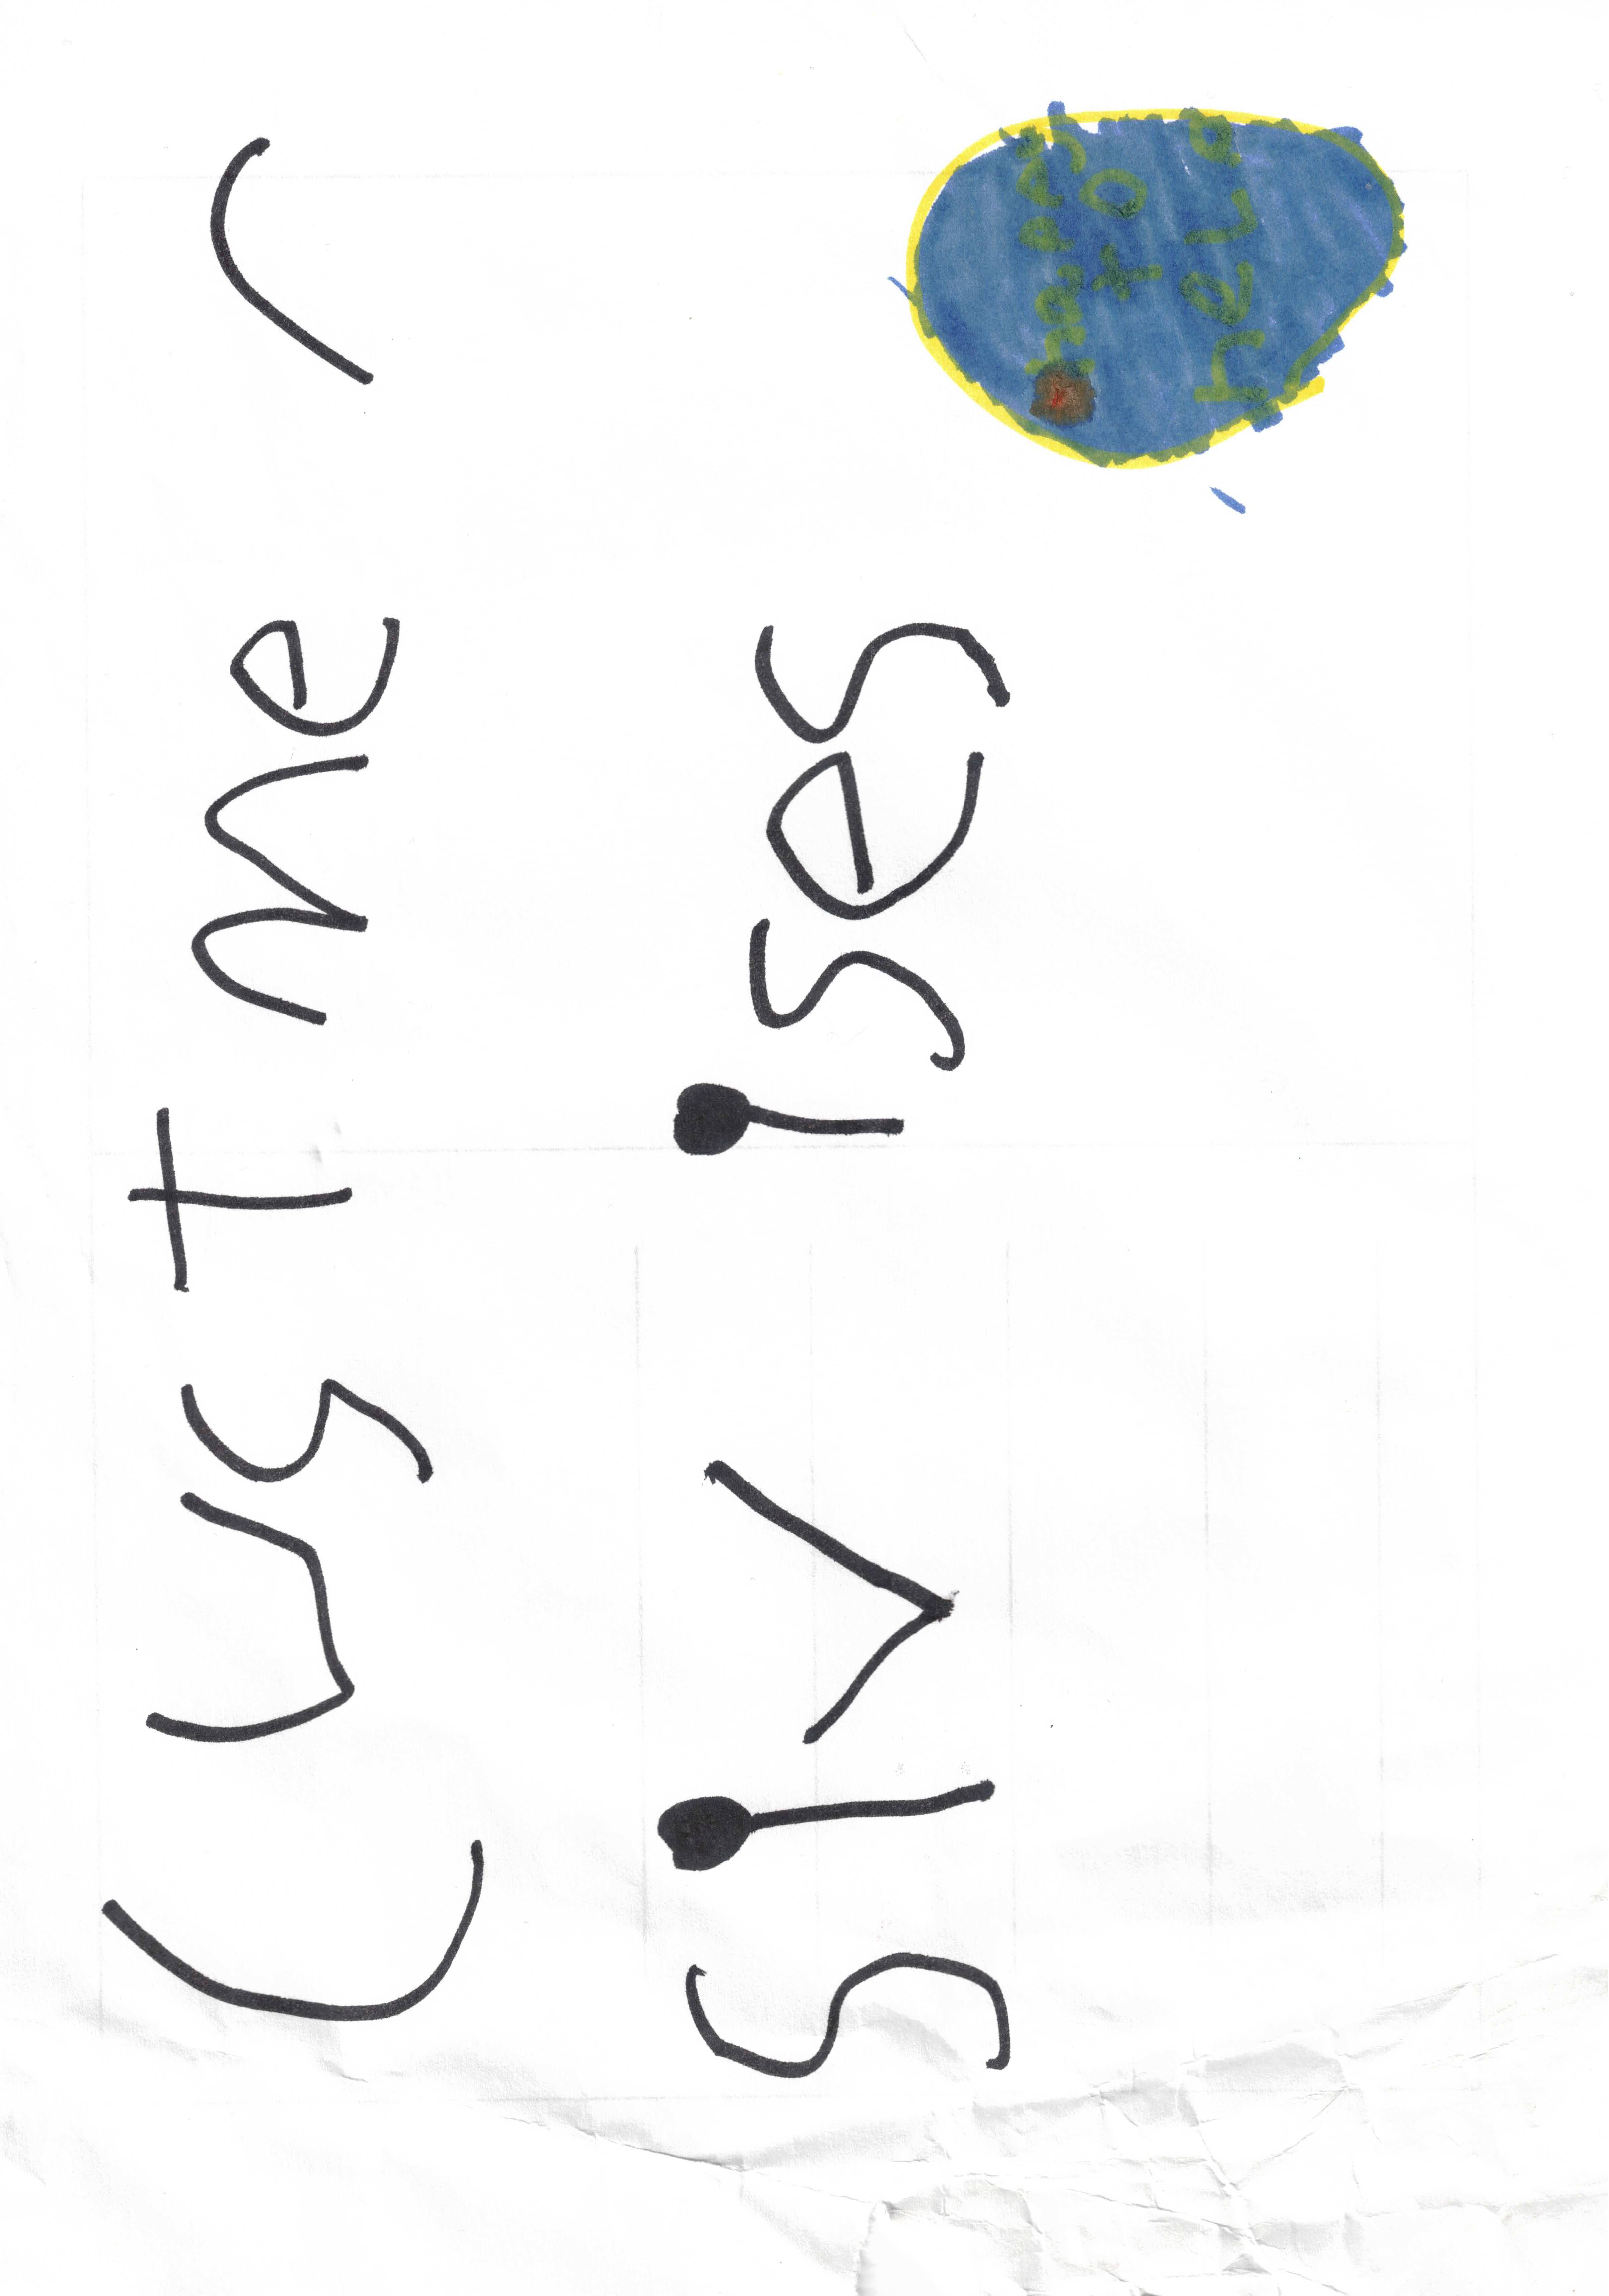 Custmer
Sivises
happy
to
help